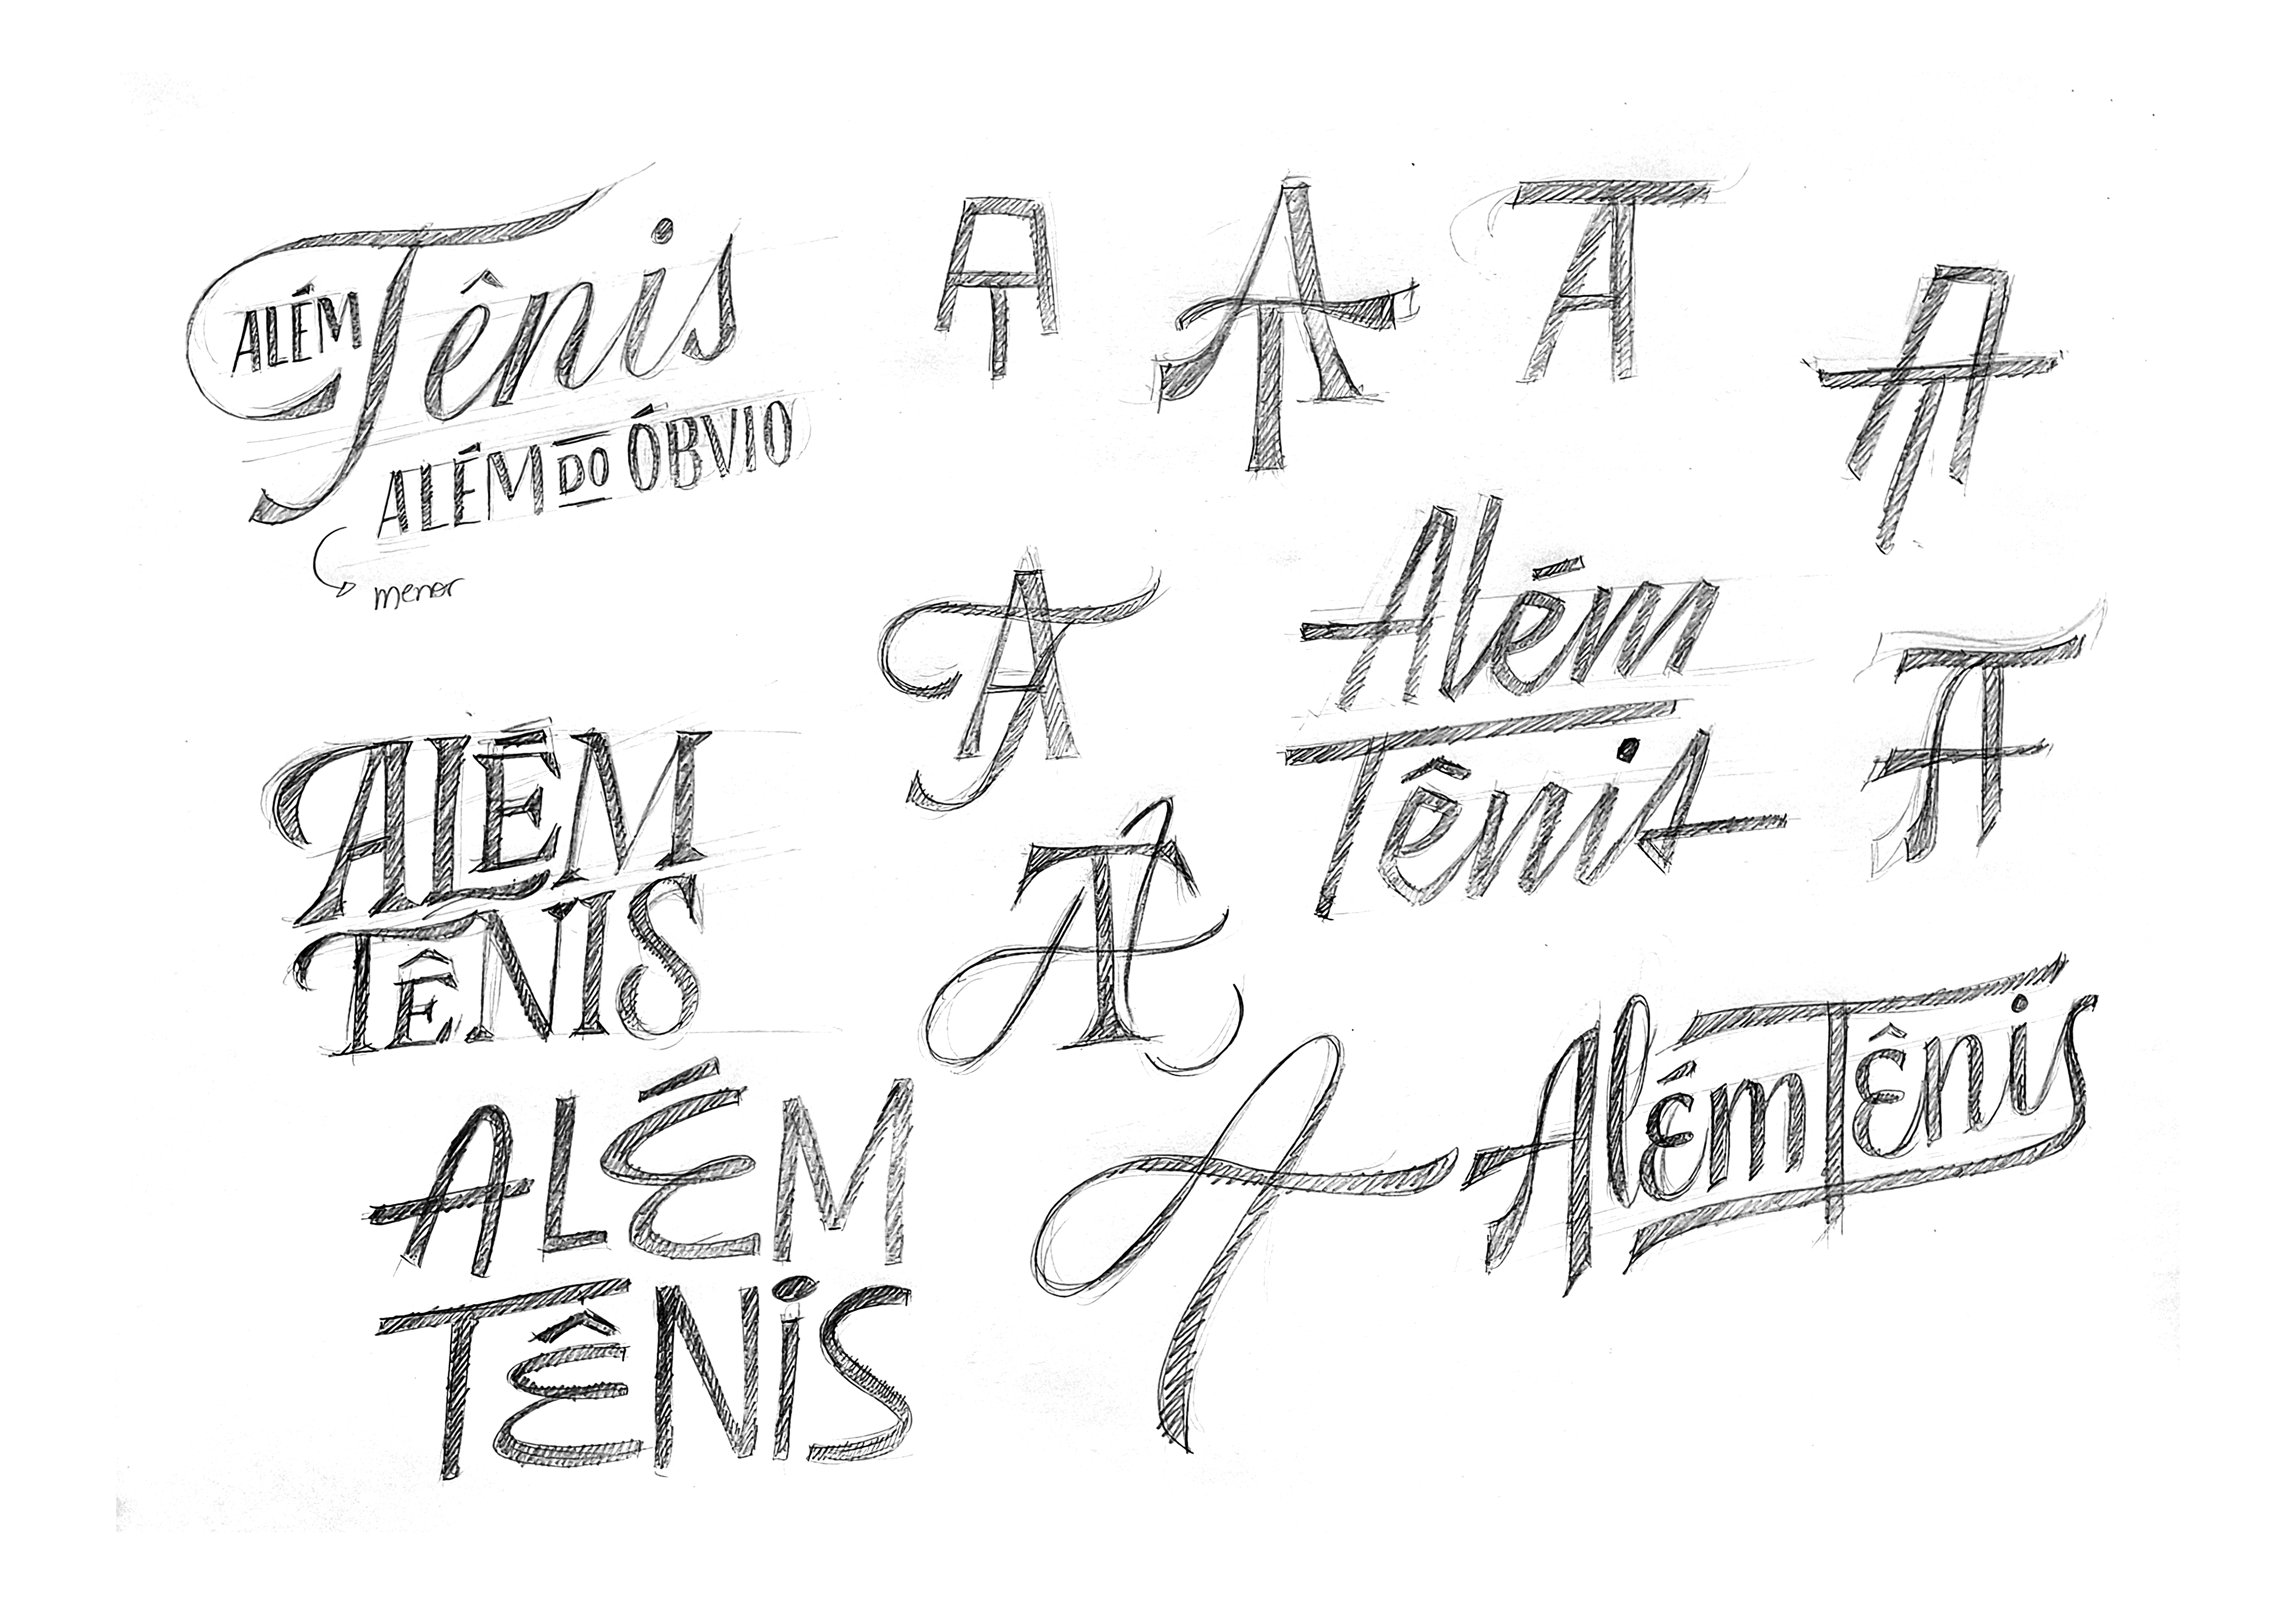 ALÉM Tênis
ALÉM DO ÓBVIO
menor
A
T
A
T
T
A
A
T
A
T
Além
Tênis
T
A
ALÉM
TÊNIS
A
T
Além Tênis
ALÉM
TÊNiS
A